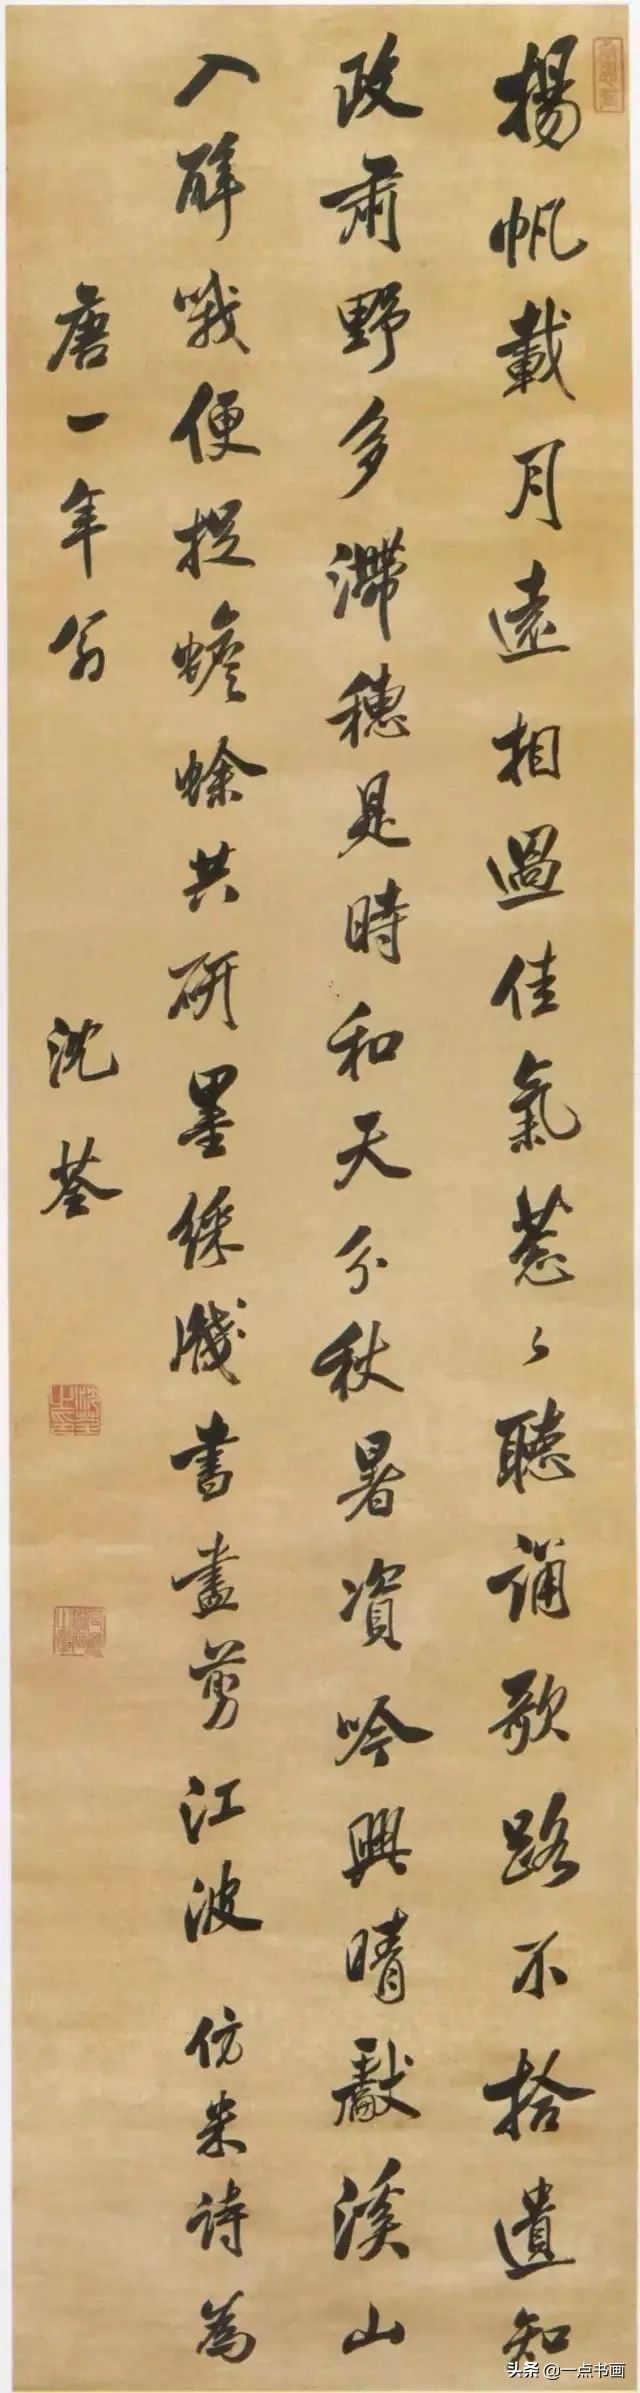 揚帆載月遠相過佳氣蔥々聽誦歌路不拾遺知
政肅野多滯穗是時和天分秋暑資吟興晴獻溪山
入醉哦便捉蟾蜍共研墨綵牋書盡剪江波 仿米詩為
唐一年翁 沈荃
沈荃之印
头条 @一点书画